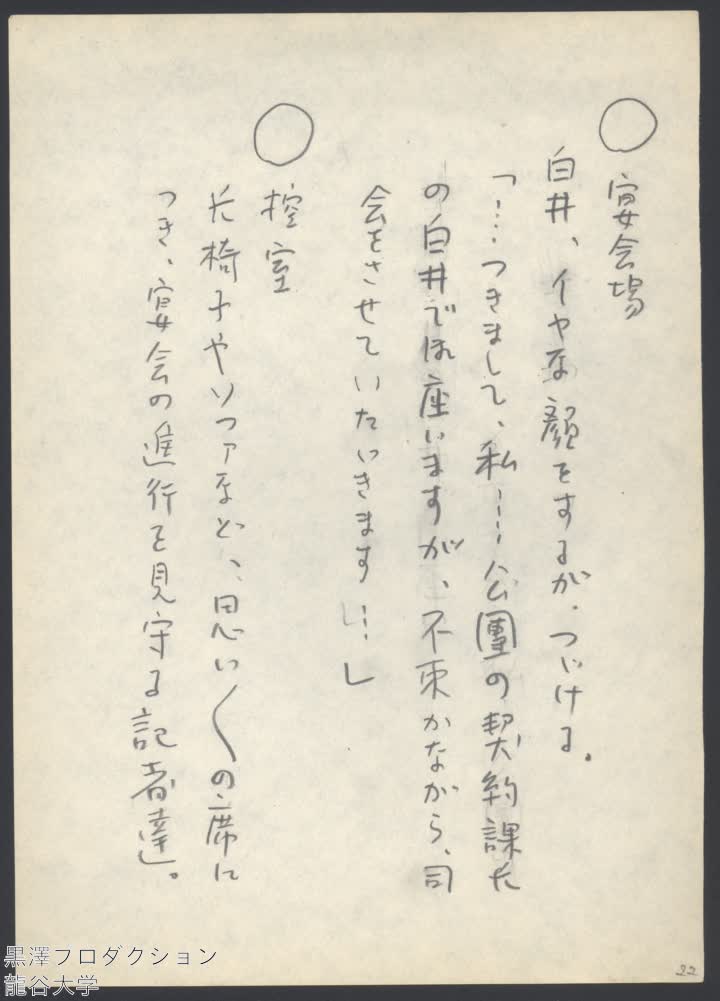 ○ 宴会場
白井、イヤな顔をするが、つゞける。
「…つきまして、私…公團の契約課长
の白井でほ座いますが、不束かながら、司
会をさせていたゞきます…」
○ 控室
长椅子やソファなど、思い〱の席に
つき、宴会の進行を見守る記者達。
22
黒澤プロダクション
龍谷大学